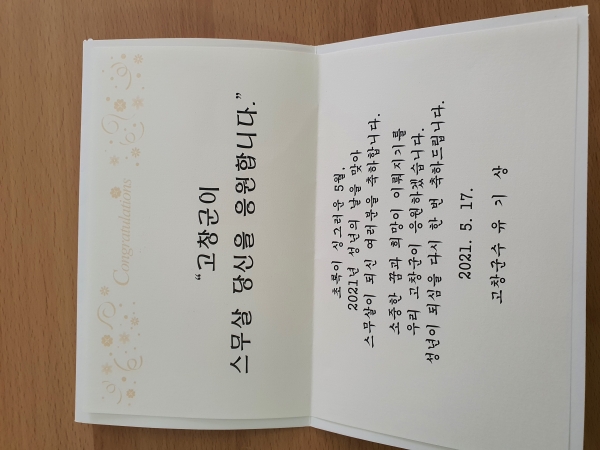 Congratulations
“고창군이
스무살 당신을 응원합니다.”
초록이 싱그러운 5월,
2021년 성년의 날을 맞아
스무살이 되신 여러분을 축하합니다.
소중한 꿈과 희망이 이뤄지기를
우리 고창군이 응원하겠습니다.
성년이 되심을 다시 한 번 축하드립니다.
2021. 5. 17.
고창군수 유 기 상